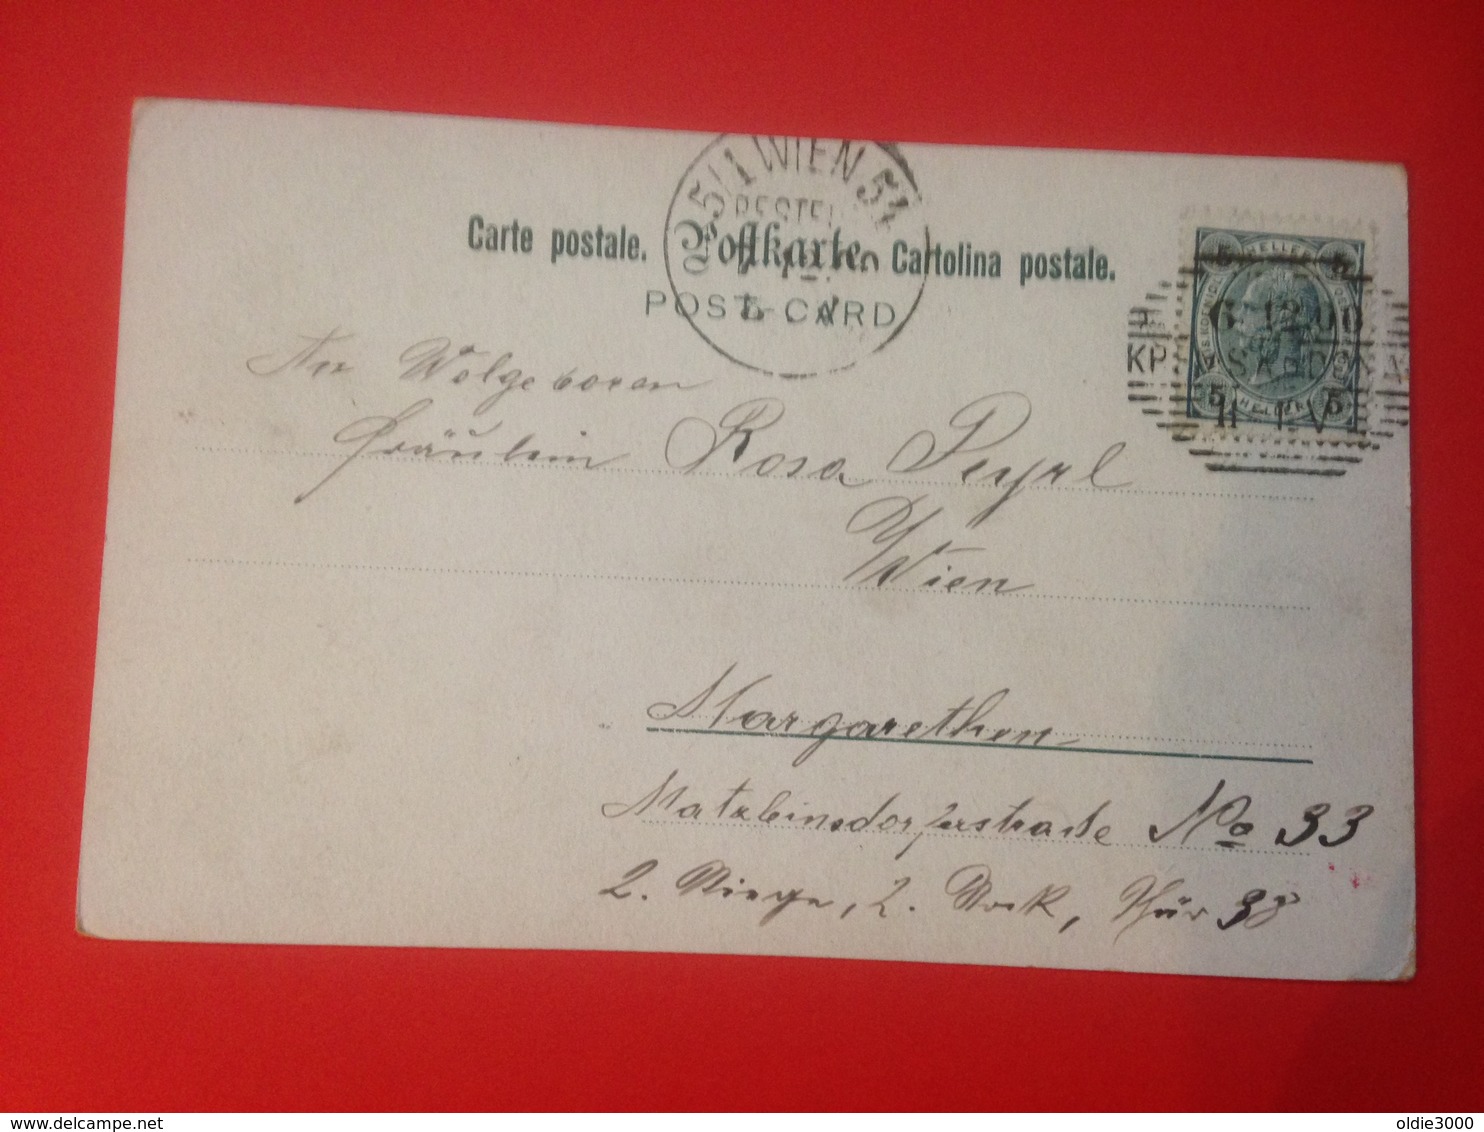 5/1 WIEN 51
BESTELLT
Carte postale. Postkarte. Cartolina postale.
POST-CARD
5 HELLER 5
6.12.00
KP
5 HELLER 5
An Wolgeboren
Fräulein Rosa Peyrl
Wien
Margarethen
Matzleinsdorferstraße No 33
2. Stiege, 2. Stock, Thür 38
delcampe.net
oldie3000